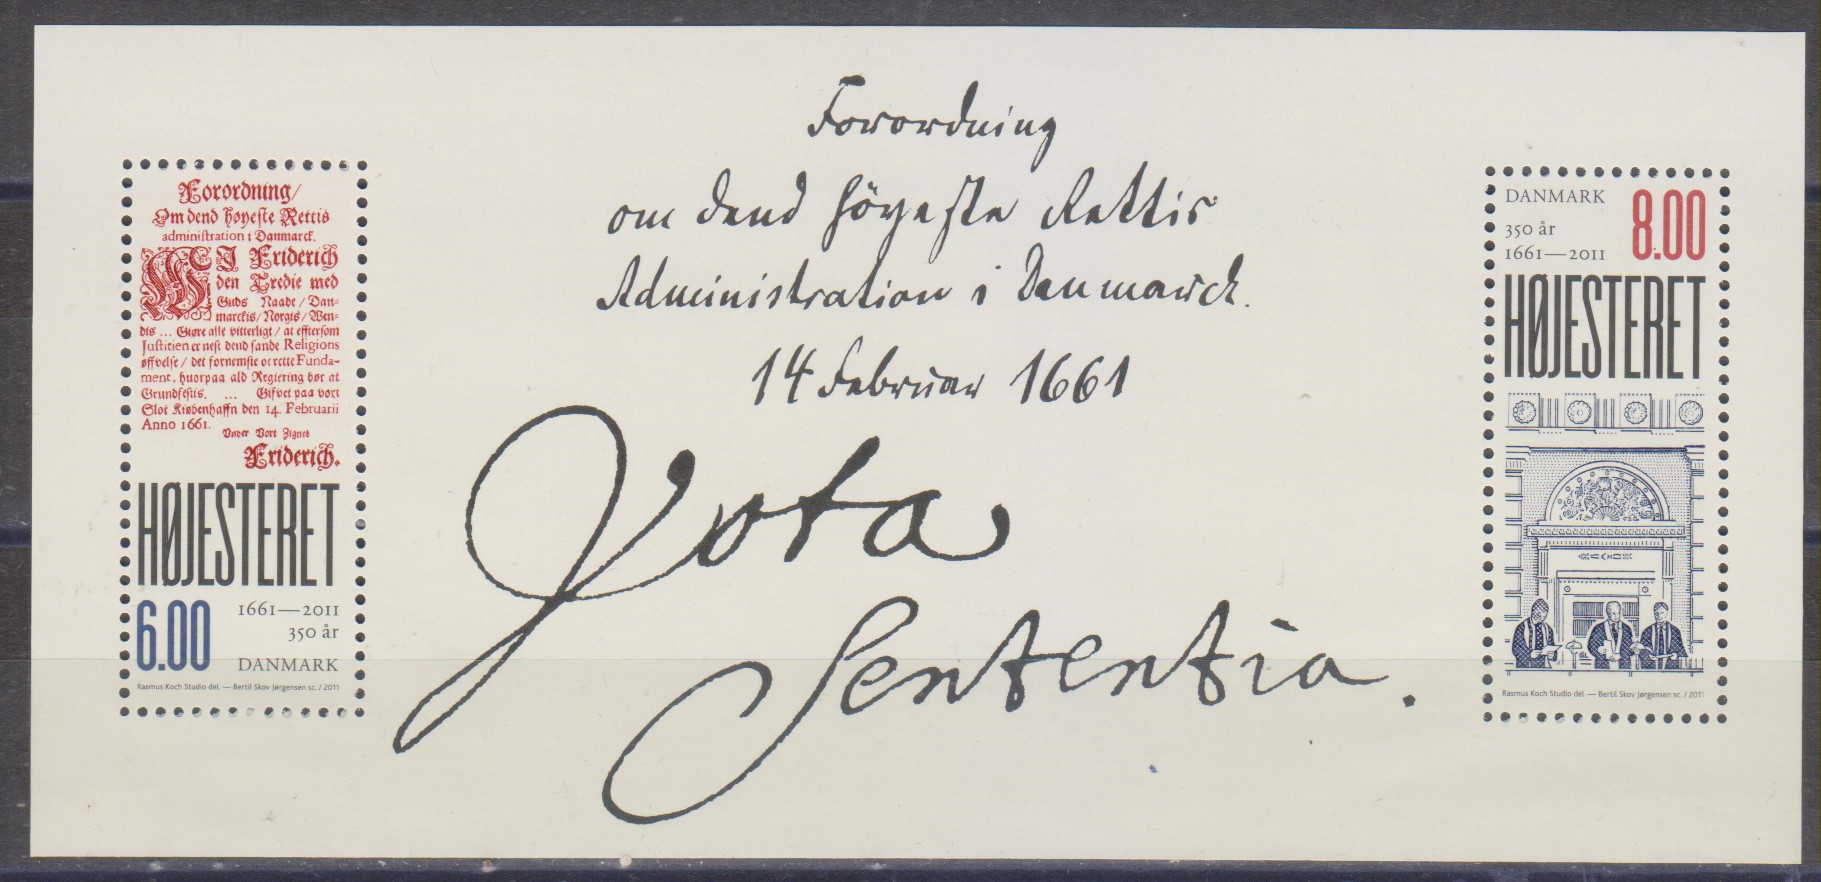 Forordning/
Om dend høyeste Rettis
administration i Danmarck.
WJ Friderich
den Tredie med
Guds Naade/Dan-
marckis/Norgis/Wen-
dis ... Giøre alle vitterligt/at efftersom
Justitien er nest dend sande Religions
øffvelse/det fornemste oc rette Funda-
ment, huorpaa ald Regiering bør at
Grundfestis. ... Gifvet paa vort
Slot Kiøbenhaffn den 14. Februarii
Anno 1661.
Under Vort Zignet
Friderich.
HØJESTERET
6.00
1661—2011
350 år
DANMARK
Rasmus Koch Studio del. — Bertil Skov Jørgensen sc. / 2011
Forordning
om dend höyeste Rettis
Administration i Danmarck.
14 Februar 1661
Vota
Sententia.
DANMARK
8.00
350 år
1661—2011
HØJESTERET
Rasmus Koch Studio del. — Bertil Skov Jørgensen sc. / 2011